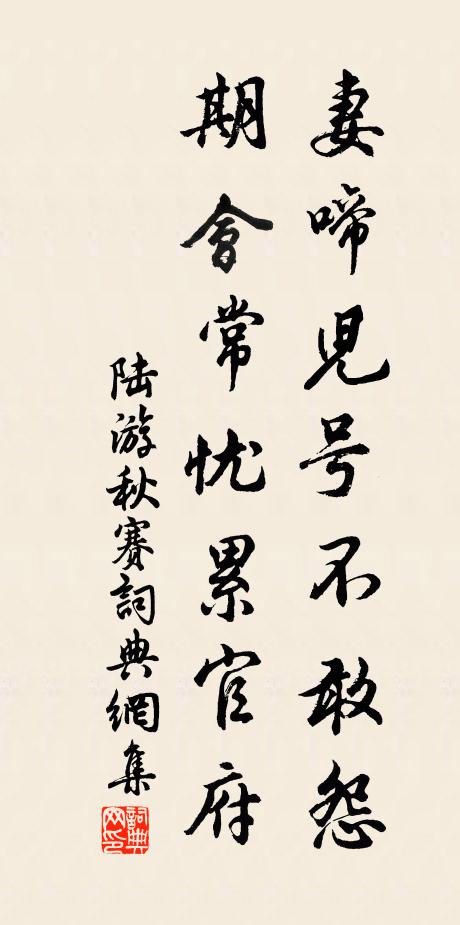 妻啼児号不敢怨
期會常忧累官府
陆游秋赛詞典網集
詞典网印